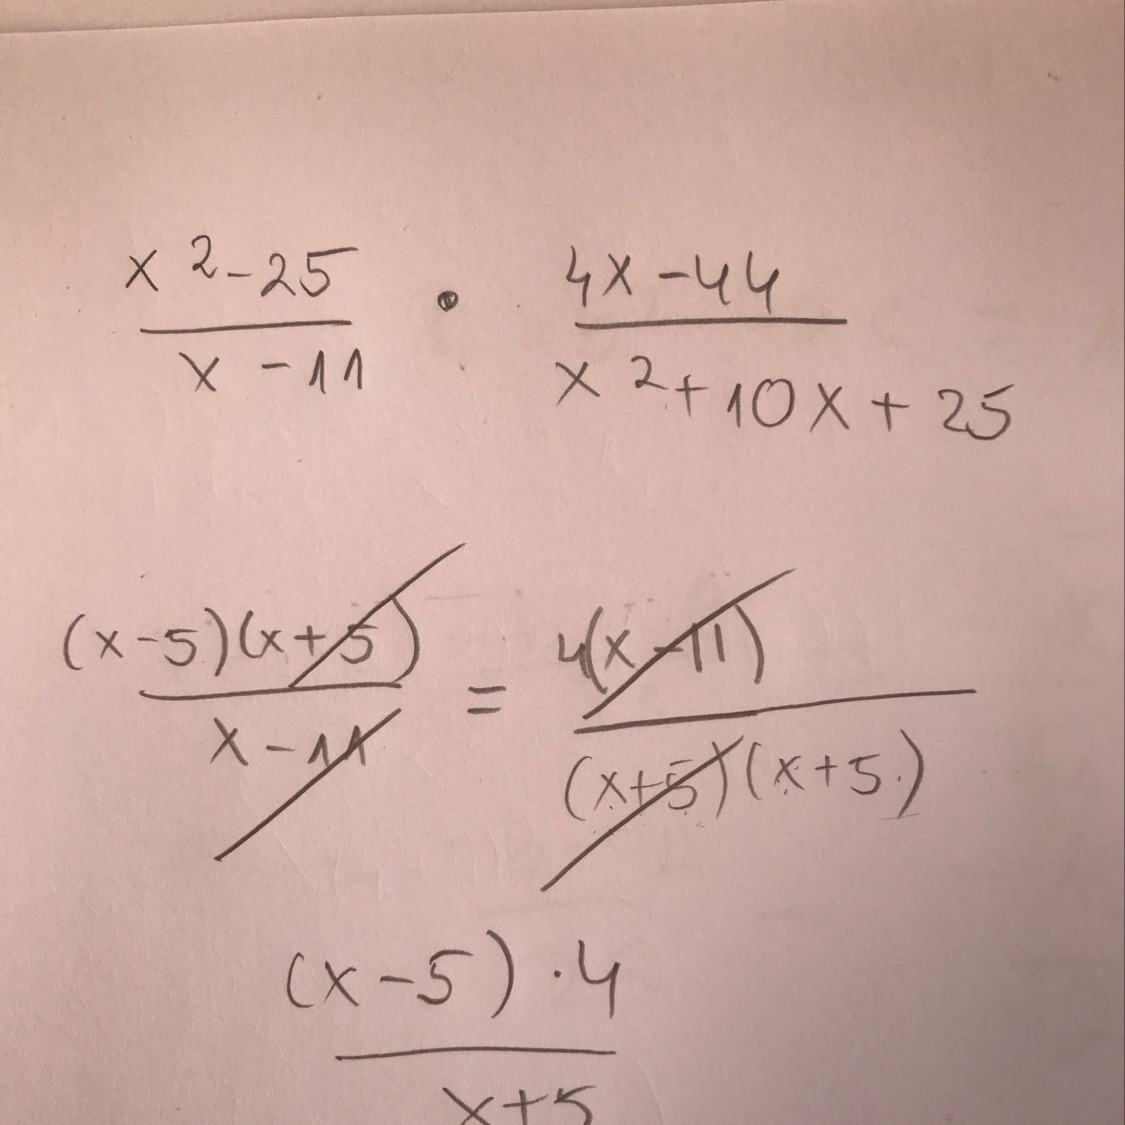 x² - 25 / x - 11 · 4x - 44 / x² + 10x + 25
(x - 5)(x + 5) / x - 11 = 4(x - 11) / (x + 5)(x + 5)
(x - 5) · 4 / x + 5